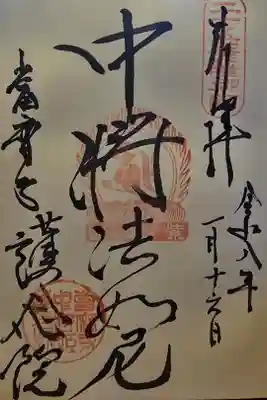 奉拝
令和八年
一月十六日
中将法如尼
當麻寺護念院